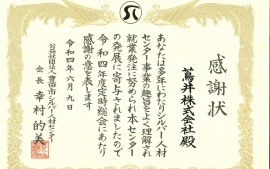 感謝状
蔦井株式会社 殿
あなたは多年にわたりシルバー人材
センター事業の趣旨をよく理解され
就業発注に努められ本センター
の発展に寄与されましたので
令和四年度定時総会にあたり
感謝の意を表します
令和四年六月九日
公益社団法人 豊富町シルバー人材センター
会長 幸村 的美